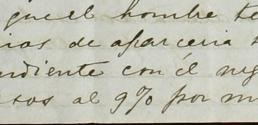 que el hombre te
rias de aparceria
ndiente con él neg
esos al 9% por m